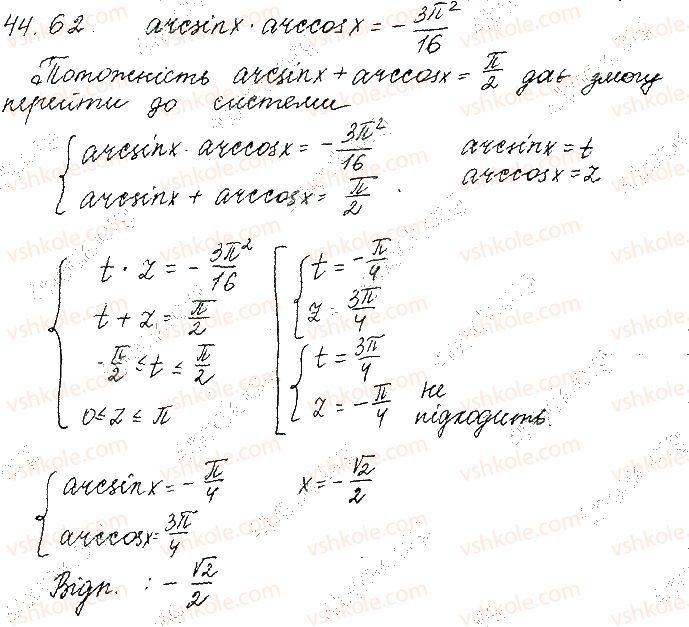 44.62. arcsinx · arccosx = - 3π²/16
Тотожність arcsinx + arccosx = π/2 дає змогу
перейти до системи
{ arcsinx · arccosx = - 3π²/16 arcsinx = t
arcsinx + arccosx = π/2 . arccosx = z
{ t · z = - 3π²/16 [ { t = - π/4
t + z = π/2 z = 3π/4
-π/2 ≤ t ≤ π/2 { t = 3π/4
0 ≤ z ≤ π z = - π/4 не підходить.
{ arcsinx = - π/4 x = - √2/2
arccosx = 3π/4
Відп. : - √2/2
vshkole.com